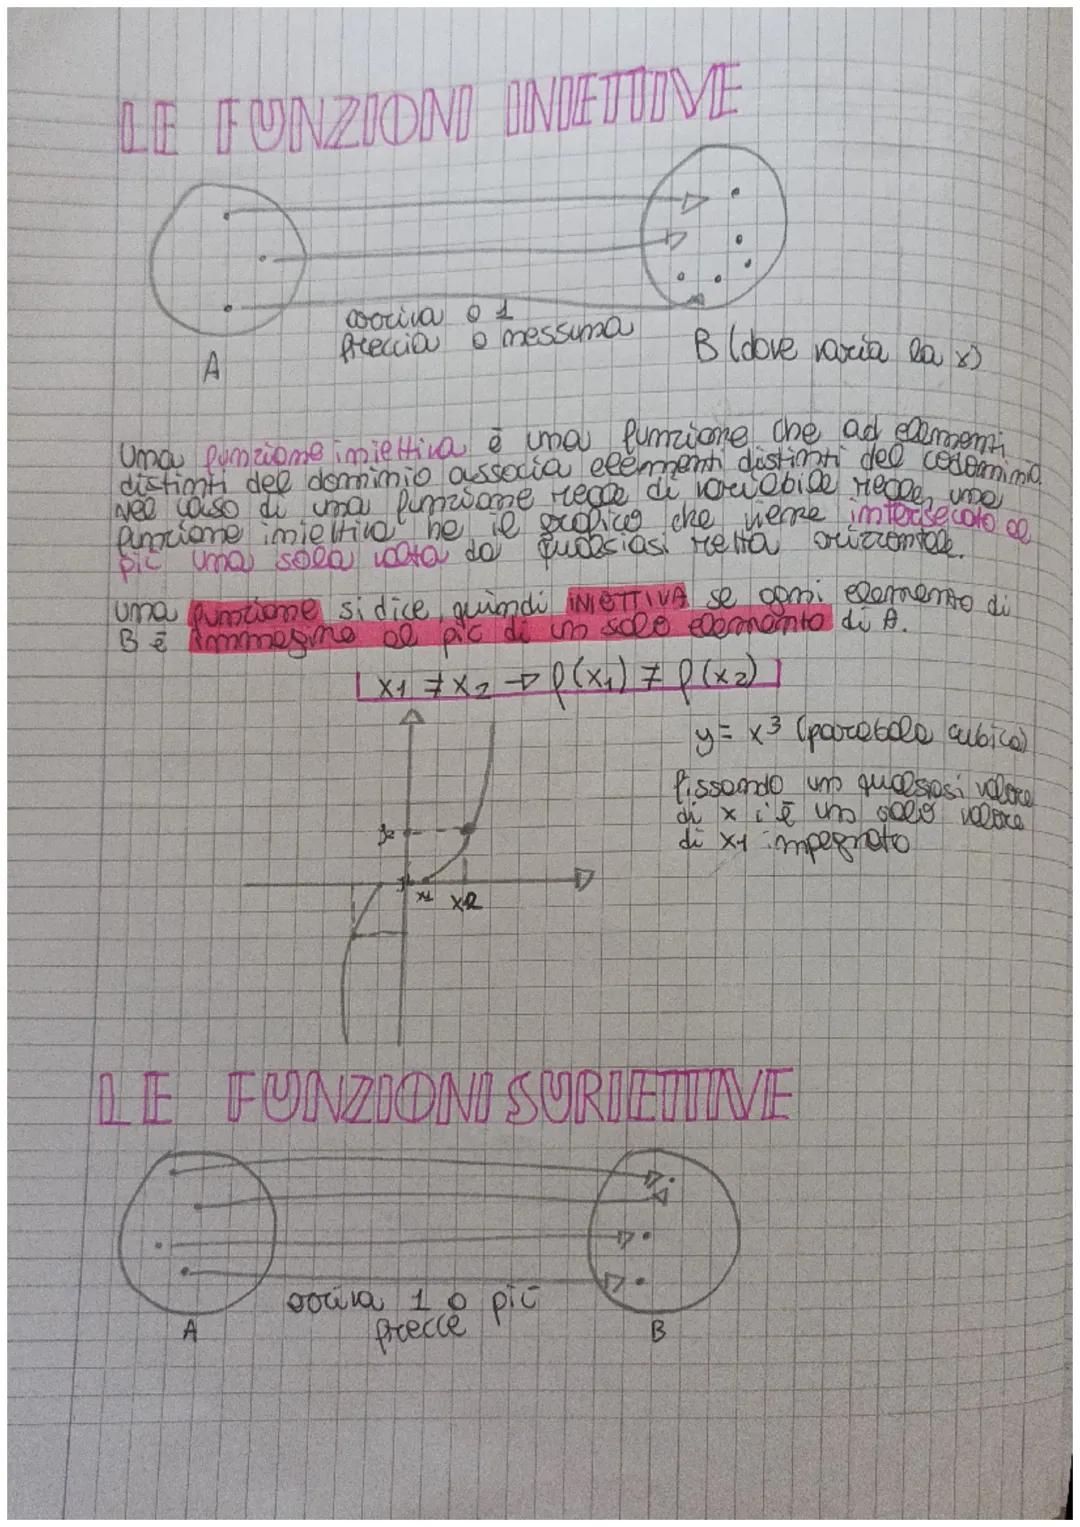 LE FUNZIONI INIETTIVE
arriva o 1
freccia o nessuna
A
B (dove varia la x)
Una funzione iniettiva è una funzione che ad elementi
distinti del dominio associa elementi distinti del codominio
nel caso di una funzione reale di variabile reale, una
funzione iniettiva ha il grafico che viene intersecato al
più una sola volta da qualsiasi retta orizzontale.
una funzione si dice, quindi INIETTIVA se ogni elemento di
B è immagine al più di un solo elemento di A.
x1 ≠ x2 → f(x1) ≠ f(x2)
y = x³ (parabola cubica)
fissando un qualsiasi valore
di x c'è un solo valore
di x1 impegnato
x1 x2
LE FUNZIONI SURIETTIVE
arriva 1 o più
frecce
A
B